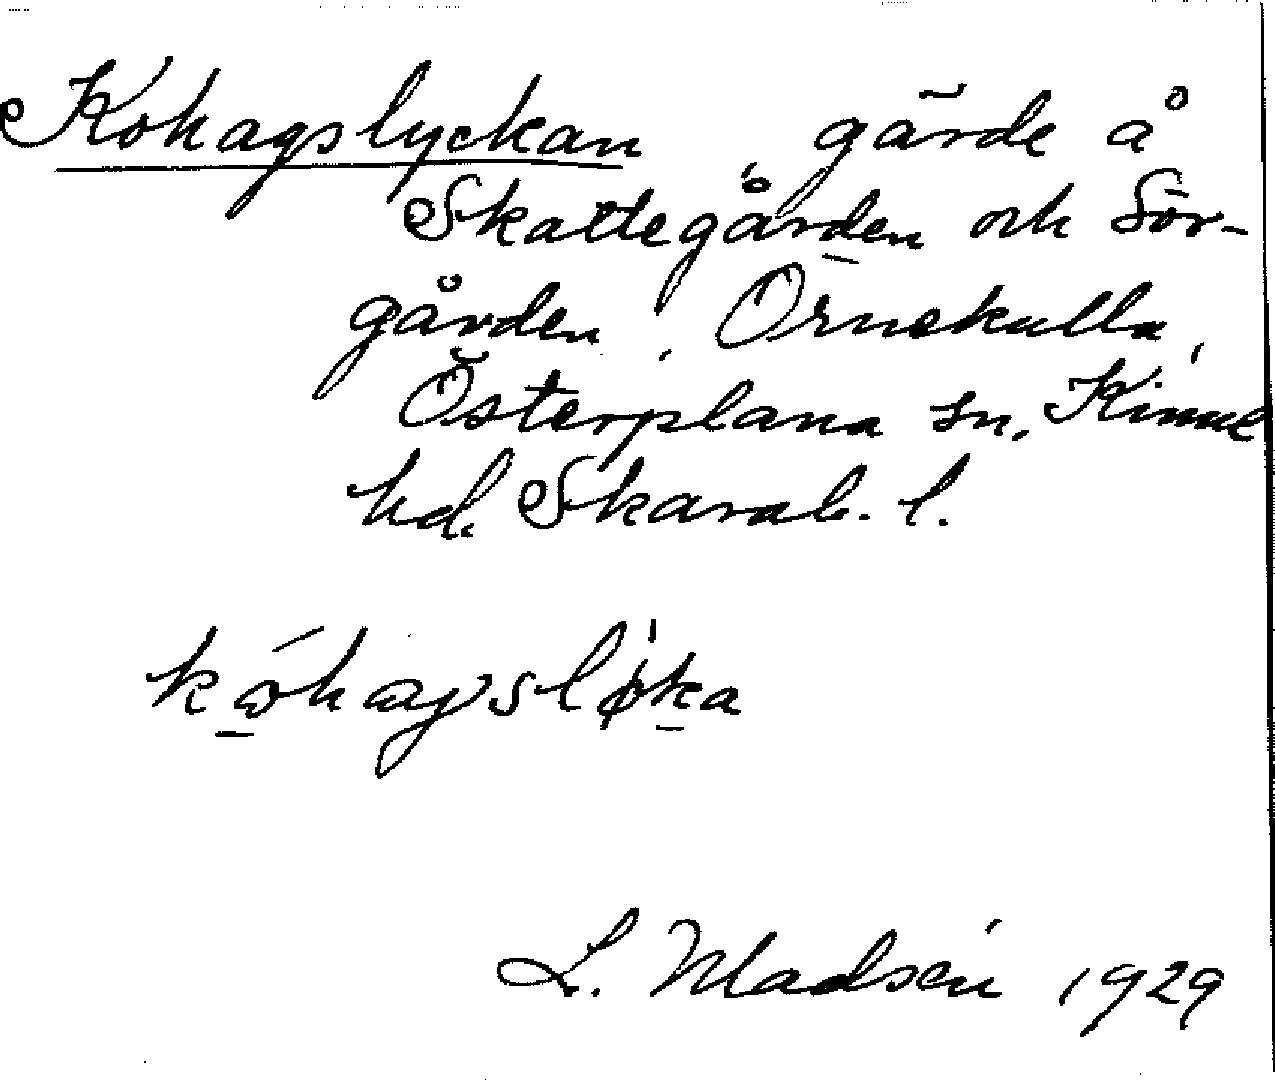 Kohagslyckan gärde å
Skattegården och Sör-
gården, Örnekulla,
Österplana sn, Kinne
hd. Skarab. l.
kóhagsløka
L. Madsén 1929